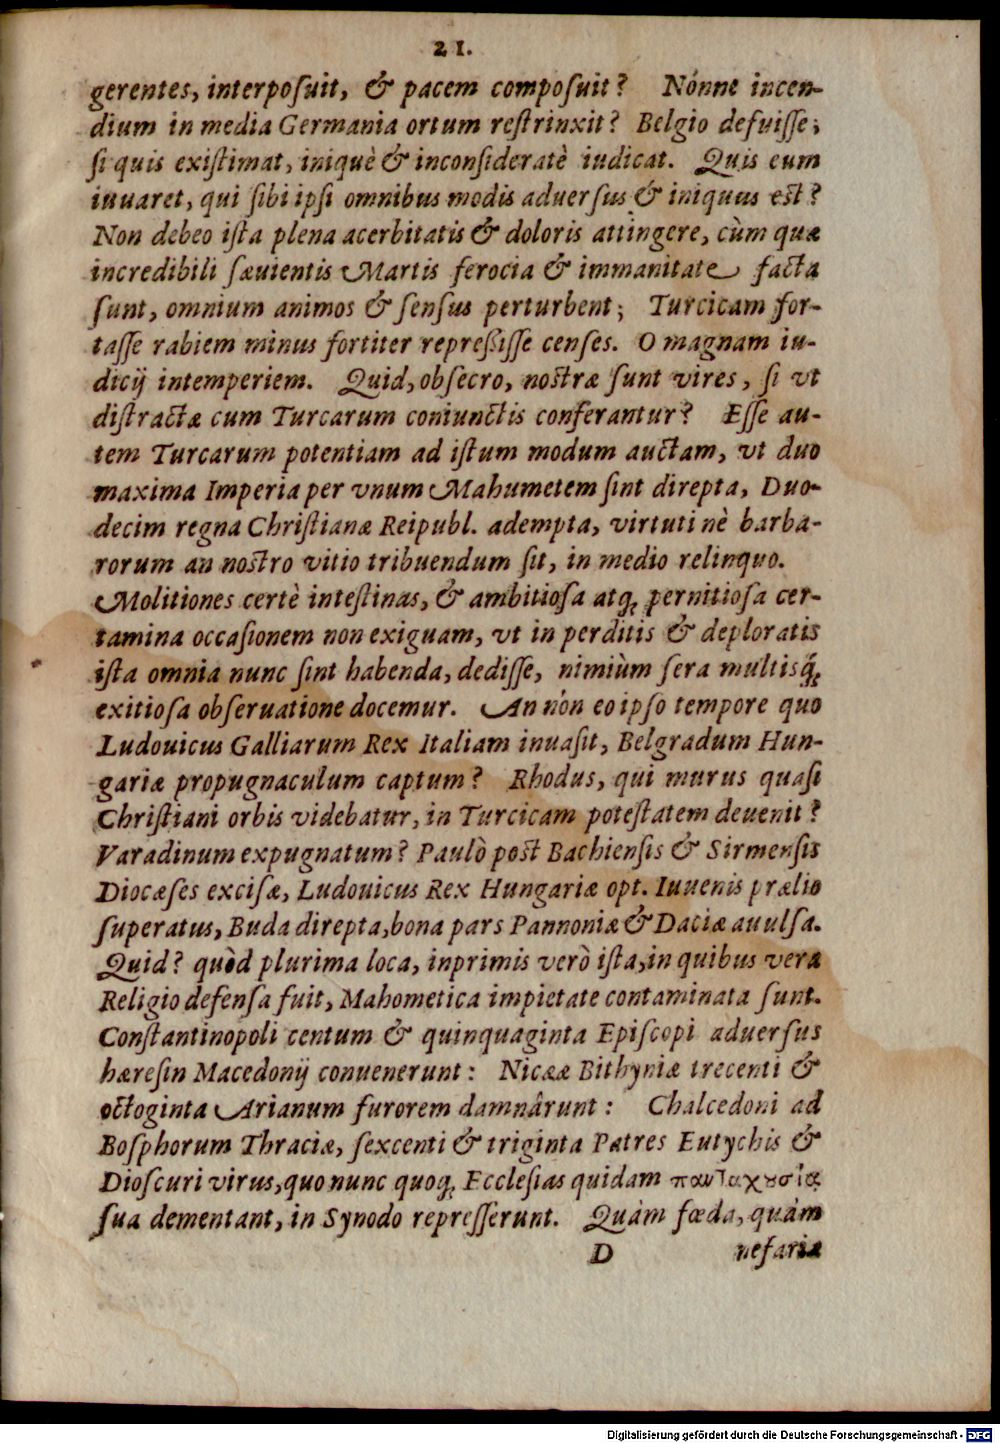 21.
gerentes, interposuit, & pacem composuit? Nónne incen-
dium in media Germania ortum restrinxit? Belgio defuisse,
si quis existimat, iniquè & inconsideratè iudicat. Quis eum
iuuaret, qui sibi ipsi omnibus modis aduersus & iniquus est?
Non debeo ista plena acerbitatis & doloris attingere, cùm quæ
incredibili sæuientis Martis ferocia & immanitate facta
sunt, omnium animos & sensus perturbent; Turcicam for-
tasse rabiem minus fortiter repreßisse censes. O magnam iu-
dicij intemperiem. Quid, obsecro, nostræ sunt vires, si vt
distractæ cum Turcarum coniunctis conferantur? Esse au-
tem Turcarum potentiam ad istum modum auctam, vt duo
maxima Imperia per vnum Mahumetem sint direpta, Duo-
decim regna Christianæ Reipubl. adempta, virtuti nè barba-
rorum an nostro vitio tribuendum sit, in medio relinquo.
Molitiones certè intestinas, & ambitiosa atq; pernitiosa cer-
tamina occasionem non exiguam, vt in perditis & deploratis
ista omnia nunc sint habenda, dedisse, nimiùm sera multisq́;
exitiosa obseruatione docemur. An nón eo ipso tempore quo
Ludouicus Galliarum Rex Italiam inuasit, Belgradum Hun-
gariæ propugnaculum captum? Rhodus, qui murus quasi
Christiani orbis videbatur, in Turcicam potestatem deuenit?
Varadinum expugnatum? Paulò post Bachiensis & Sirmensis
Diocæses excisæ, Ludouicus Rex Hungariæ opt. Iuuenis prælio
superatus, Buda direpta, bona pars Pannoniæ & Daciæ auulsa.
Quid? quòd plurima loca, inprimis verò ista, in quibus vera
Religio defensa fuit, Mahometica impietate contaminata sunt.
Constantinopoli centum & quinquaginta Episcopi aduersus
hæresin Macedonij conuenerunt: Nicææ Bithyniæ trecenti &
octoginta Arianum furorem damnârunt: Chalcedoni ad
Bosphorum Thraciæ, sexcenti & triginta Patres Eutychis &
Dioscuri virus, quo nunc quoq; Ecclesias quidam
sua dementant, in Synodo represserunt. Quàm fœda, quàm
D nefaria
Digitalisierung gefördert durch die Deutsche Forschungsgemeinschaft - DFG